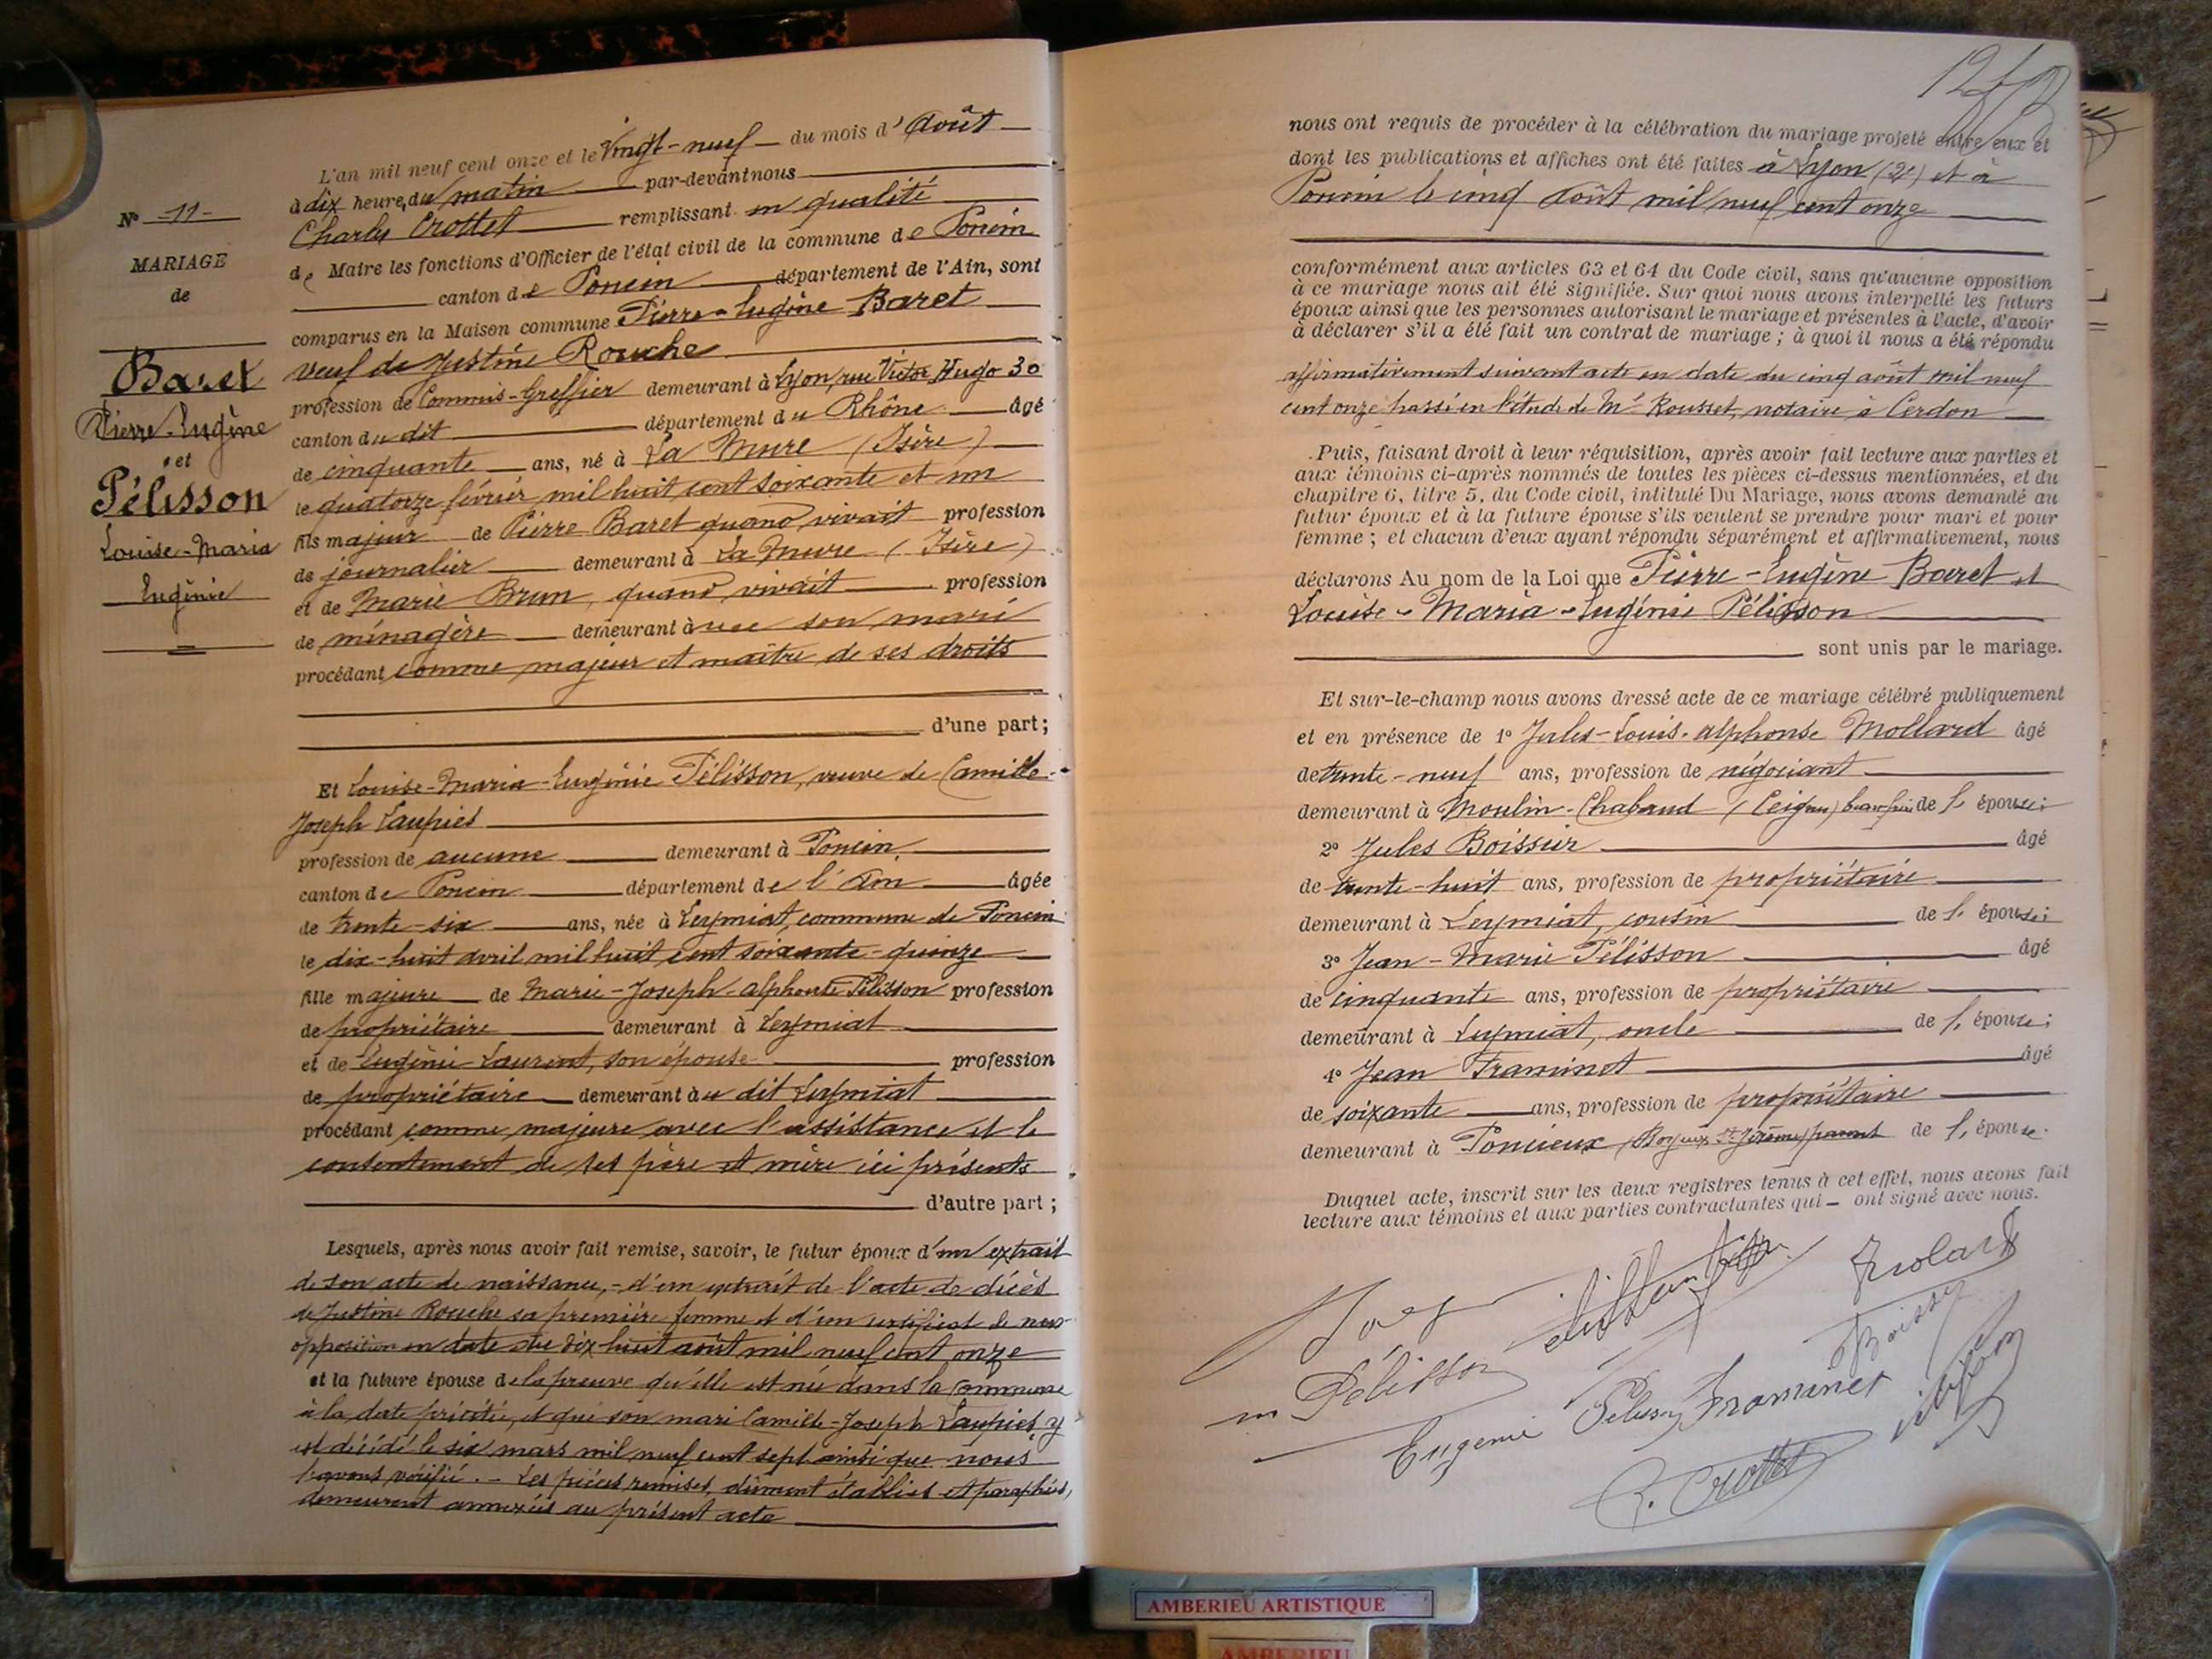 N° -11-
MARIAGE
de
Baret
Pierre-Eugène
et
Pélisson
Louise-Maria
Eugénie
L'an mil neuf cent onze et le vingt-neuf du mois d'août
à dix heures du matin par-devant nous
Charles Crottet remplissant en qualité
de Maire les fonctions d'Officier de l'état civil de la commune de Poncin
canton de Poncin département de l'Ain, sont
comparus en la Maison commune Pierre-Eugène Baret
veuf de Justine Rouche
profession de Commis-Greffier demeurant à Lyon, rue Victor Hugo 30
canton du dit département du Rhône âgé
de cinquante ans, né à La Mure (Isère)
le quatorze février mil huit cent soixante et un
fils majeur de Pierre Baret quand vivait profession
de journalier demeurant à La Mure (Isère)
et de Marie Brun, quand vivait profession
de ménagère demeurant avec son mari
procédant comme majeur et maître de ses droits
d'une part;
Et Louise-Maria-Eugénie Pélisson, veuve de Camille-
Joseph Laupies
profession de aucune demeurant à Poncin,
canton de Poncin département de l'Ain âgée
de trente-six ans, née à Leymiat, commune de Poncin
le dix-huit avril mil huit cent soixante-quinze
fille majeure de Marie-Joseph-Alphonse Pélisson profession
de propriétaire demeurant à Leymiat
et de Eugénie Laurent, son épouse profession
de propriétaire demeurant au dit Leymiat
procédant comme majeure avec l'assistance et le
consentement de ses père et mère ici présents
d'autre part;
Lesquels, après nous avoir fait remise, savoir, le futur époux d'un extrait
de son acte de naissance, - d'un extrait de l'acte de décès
de Justine Rouche sa première femme et d'un certificat de non-
opposition en date du dix huit août mil neuf cent onze
et la future épouse de la preuve qu'elle est née dans la Commune
à la date précitée, et que son mari Camille-Joseph Laupies y
est décédé le six mars mil neuf cent sept ainsi que nous
l'avons vérifié. - Les pièces remises, dûment établies et paraphées,
demeurent annexées au présent acte
nous ont requis de procéder à la célébration du mariage projeté entre eux et
dont les publications et affiches ont été faites à Lyon (2e) et à
Poncin le cinq août mil neuf cent onze
conformément aux articles 63 et 64 du Code civil, sans qu'aucune opposition
à ce mariage nous ait été signifiée. Sur quoi nous avons interpellé les futurs
époux ainsi que les personnes autorisant le mariage et présentes à l'acte, d'avoir
à déclarer s'il a été fait un contrat de mariage; à quoi il nous a été répondu
affirmativement suivant acte en date du cinq août mil neuf
cent onze passé en l'étude de Me Rousset, notaire à Cerdon
Puis, faisant droit à leur réquisition, après avoir fait lecture aux parties et
aux témoins ci-après nommés de toutes les pièces ci-dessus mentionnées, et du
chapitre 6, titre 5, du Code civil, intitulé Du Mariage, nous avons demandé au
futur époux et à la future épouse s'ils veulent se prendre pour mari et pour
femme; et chacun d'eux ayant répondu séparément et affirmativement, nous
déclarons Au nom de la Loi que Pierre-Eugène Baret et
Louise-Maria-Eugénie Pélisson
sont unis par le mariage.
Et sur-le-champ nous avons dressé acte de ce mariage célébré publiquement
et en présence de 1° Jules-Louis-Alphonse Mollard âgé
de trente-neuf ans, profession de négociant
demeurant à Moulin-Chabaud (Ceignes) beau-frère de l'épouse;
2° Jules Boissier âgé
de trente-huit ans, profession de propriétaire
demeurant à Leymiat, cousin de l'épouse;
3° Jean-Marie Pélisson âgé
de cinquante ans, profession de propriétaire
demeurant à Leymiat, oncle de l'épouse;
4° Jean Framinet âgé
de soixante ans, profession de propriétaire
demeurant à Poncieux (Boyeux St Jérôme) parent de l'épouse.
Duquel acte, inscrit sur les deux registres tenus à cet effet, nous avons fait
lecture aux témoins et aux parties contractantes qui ont signé avec nous.
Pélisson
Eugénie
Framinet
C. Crottet
AMBERIEU ARTISTIQUE
AMBERIEU